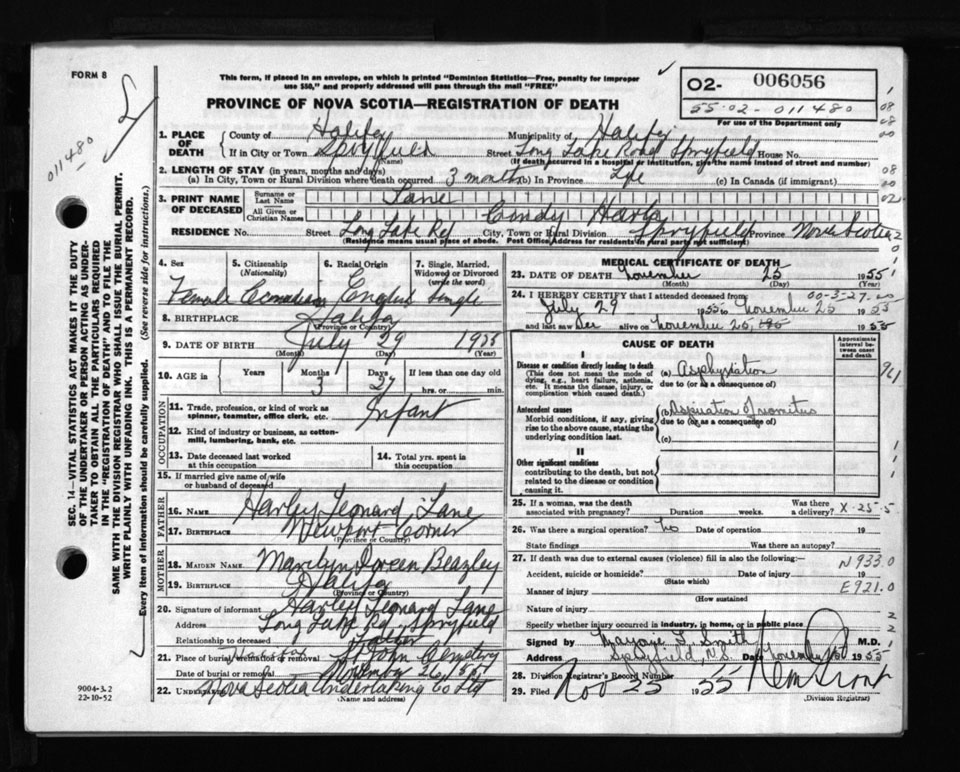 FORM 8
This form, if placed in an envelope, on which is printed "Dominion Statistics—Free, penalty for improper
use $50," and properly addressed will pass through the mail "FREE"
PROVINCE OF NOVA SCOTIA—REGISTRATION OF DEATH
02- 006056
55-02-011480
For use of the Department only
011480
SEC. 14—VITAL STATISTICS ACT MAKES IT THE DUTY
OF THE UNDERTAKER OR PERSON ACTING AS UNDER-
TAKER TO OBTAIN ALL THE PARTICULARS REQUIRED
IN THE "REGISTRATION OF DEATH" AND TO FILE THE
SAME WITH THE DIVISION REGISTRAR WHO SHALL ISSUE THE BURIAL PERMIT.
WRITE PLAINLY WITH UNFADING INK. THIS IS A PERMANENT RECORD.
Every item of information should be carefully supplied. (See reverse side for instructions.)
1. PLACE OF DEATH
County of Halifax Municipality of Halifax
If in City or Town Spryfield (Name) Street Long Lake Road, Spryfield House No.
(If death occurred in a hospital or institution, give the name instead of street and number)
2. LENGTH OF STAY (in years, months and days)
(a) In City, Town or Rural Division where death occurred 3 months (b) In Province Life (c) In Canada (if immigrant)
3. PRINT NAME OF DECEASED
Surname or Last Name Lane
All Given or Christian Names Cindy
RESIDENCE No. Street Long Lake Rd City, Town or Rural Division Spryfield Province Nova Scotia
(Residence means usual place of abode. Post Office Address for residents in rural parts not sufficient)
4. Sex 5. Citizenship (Nationality) 6. Racial Origin 7. Single, Married, Widowed or Divorced (write the word)
Female Canadian English Single
8. BIRTHPLACE Halifax
(Province or Country)
9. DATE OF BIRTH July 29 1955
(Month) (Day) (Year)
10. AGE in Years Months 3 Days 27 If less than one day old hrs. or min.
OCCUPATION
11. Trade, profession, or kind of work as spinner, teamster, office clerk, etc. Infant
12. Kind of industry or business, as cotton-mill, lumbering, bank, etc.
13. Date deceased last worked at this occupation
14. Total yrs. spent in this occupation
15. If married give name of wife or husband of deceased
FATHER
16. NAME Harley Leonard Lane
17. BIRTHPLACE Newport Corner
(Province or Country)
MOTHER
18. MAIDEN NAME Marilyn Doreen Beazley
19. BIRTHPLACE Halifax
(Province or Country)
20. Signature of informant Harley Leonard Lane
Address Long Lake Rd, Spryfield
Relationship to deceased Father
21. Place of burial, cremation or removal St John Cemetery
Date of burial or removal November 26, 55
22. UNDERTAKER Nova Scotia Undertaking Co Ltd
(Name and address)
9004-3.2
22-10-52
MEDICAL CERTIFICATE OF DEATH
23. DATE OF DEATH November 25 1955
(Month) (Day)
24. I HEREBY CERTIFY that I attended deceased from:
00-3-27
July 29 1955 to November 25 1955
and last saw her alive on November 25, 1955
CAUSE OF DEATH
Approximate interval between onset and death
I
Disease or condition directly leading to death
(This does not mean the mode of dying, e.g., heart failure, asthenia, etc. It means the disease, injury, or complication which caused death.)
(a) Asphyxiation
due to (or as a consequence of)
Antecedent causes
Morbid conditions, if any, giving rise to the above cause, stating the underlying condition last.
(b) Aspiration of vomitus
due to (or as a consequence of)
(c)
II
Other significant conditions
contributing to the death, but not related to the disease or condition causing it.
25. If a woman, was the death associated with pregnancy? Duration weeks. Was there a delivery?
X-25-5
26. Was there a surgical operation? No Date of operation 19
State findings Was there an autopsy?
27. If death was due to external causes (violence) fill in also the following:
N933.0
Accident, suicide or homicide? (State which) Date of injury 19
E921.0
Manner of injury (How sustained)
Nature of injury
Specify whether injury occurred in industry, in home, or in public place
Signed by Marjorie F. Smith M.D.
Address Spryfield, N.S. Date November 1955
28. Division Registrar's Record Number
29. Filed Nov 25 1955
(Division Registrar)